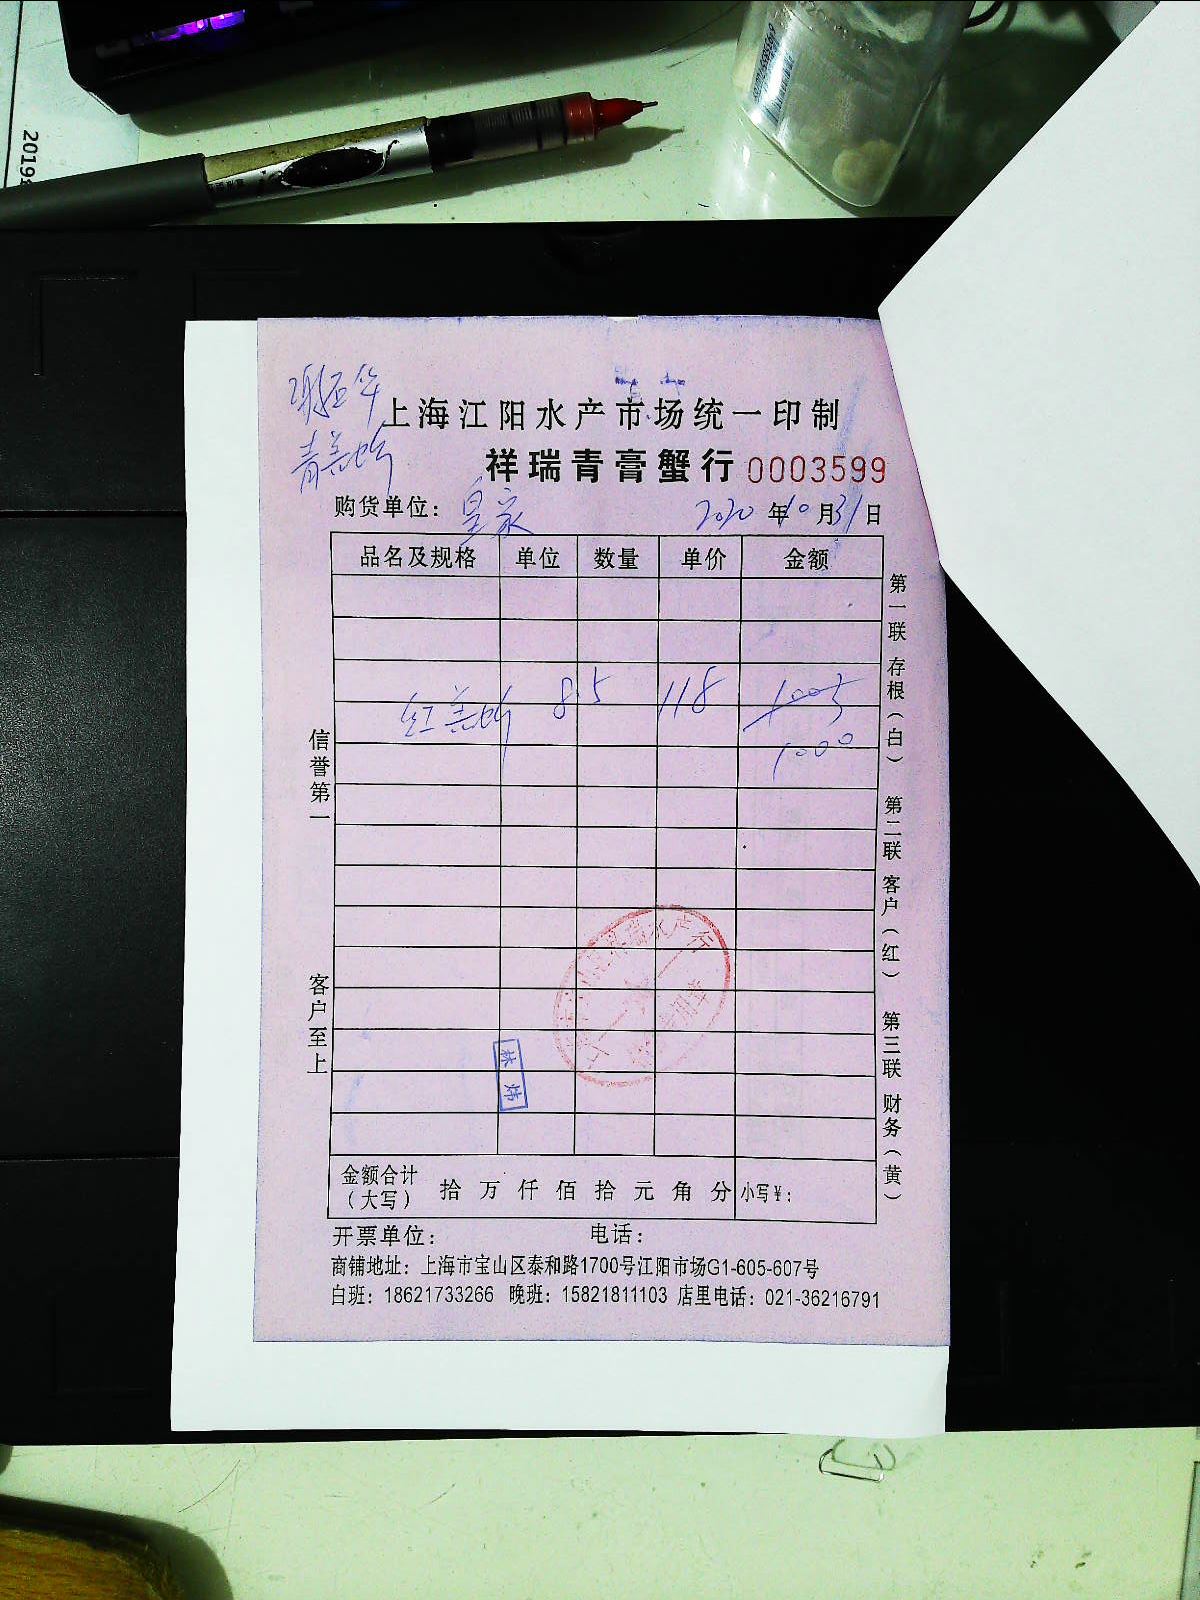 2019
上海江阳水产市场统一印制
祥瑞青膏蟹行 0003599
购货单位： 皇家 2020年10月31日
品名及规格 单位 数量 单价 金额
红 85 118 1005
1000
金额合计（大写） 拾 万 仟 佰 拾 元 角 分 小写¥：
开票单位： 电话：
商铺地址：上海市宝山区泰和路1700号江阳市场G1-605-607号
白班：18621733266 晚班：15821811103 店里电话：021-36216791
信誉第一
客户至上
第一联 存根（白）
第二联 客户（红）
第三联 财务（黄）
林炜